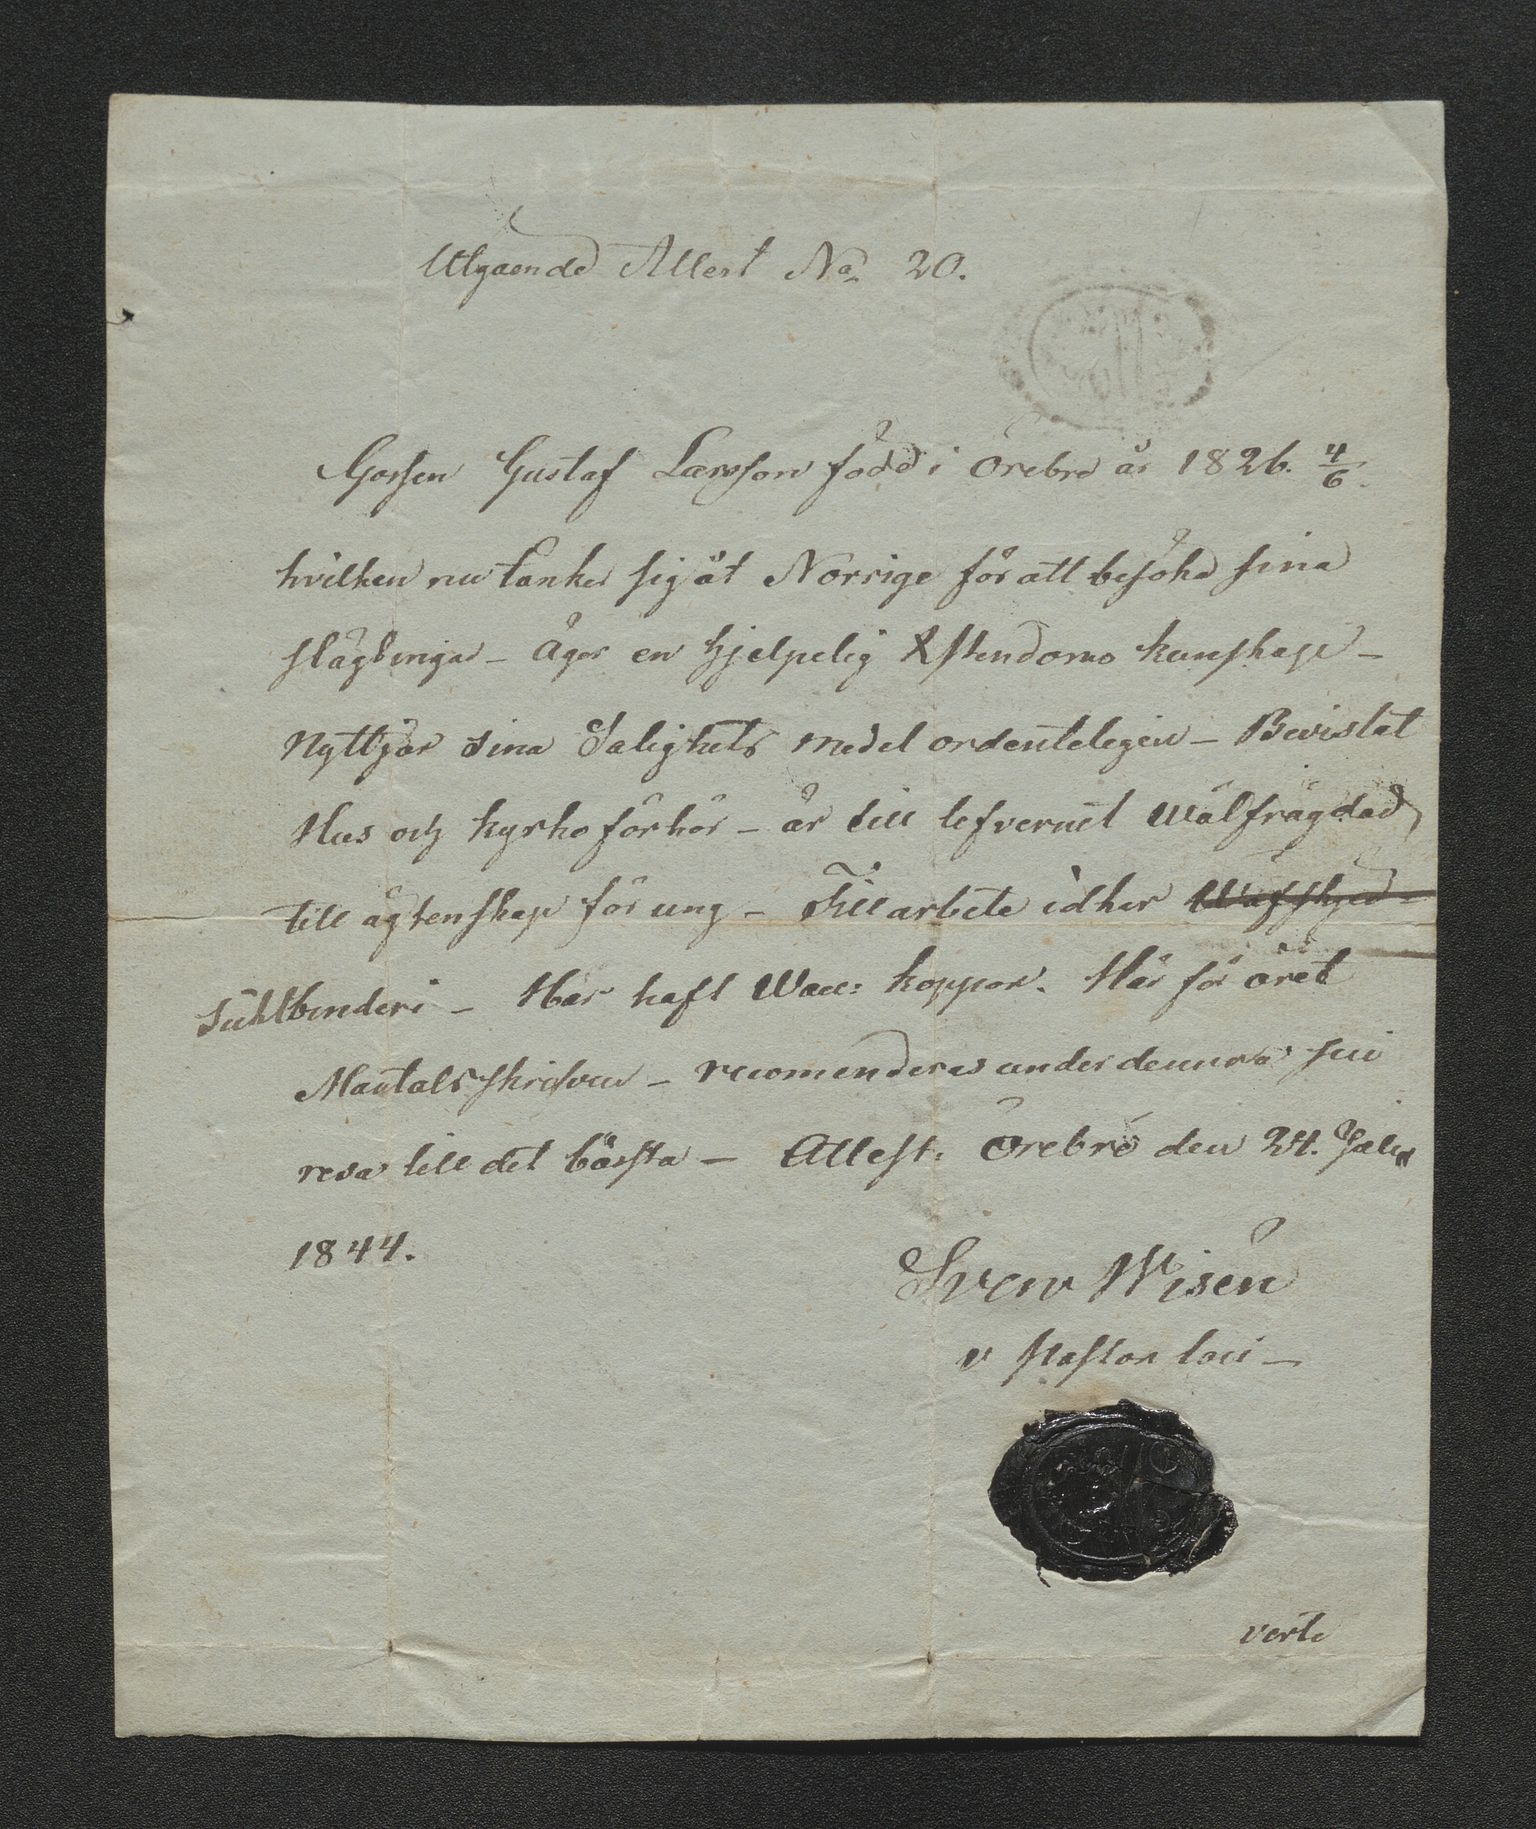 Utgaende Attest No 20.
Gossen Gustaf Larsson född i Örebro år 1826. 4/6.
hvilken nu tänker sig åt Norrige för att besöka sina
slägtingar - Äger en hjelpelig Xstendoms kunskap -
Nyttjar sina Salighets medel ordenteligen - Bevistat
Hus och kyrko förhör - är till lefvernet wälfrägdad,
till ägtenskap för ung - Till arbete idkar
- Har haft Wac: koppor. Här för året
Mantalsskrifven - recomenderas under denna sin
resa till det bässta - Attest. Örebro den 24. Juli
1844.
Sven Wisén
v Pastor loci -
verte